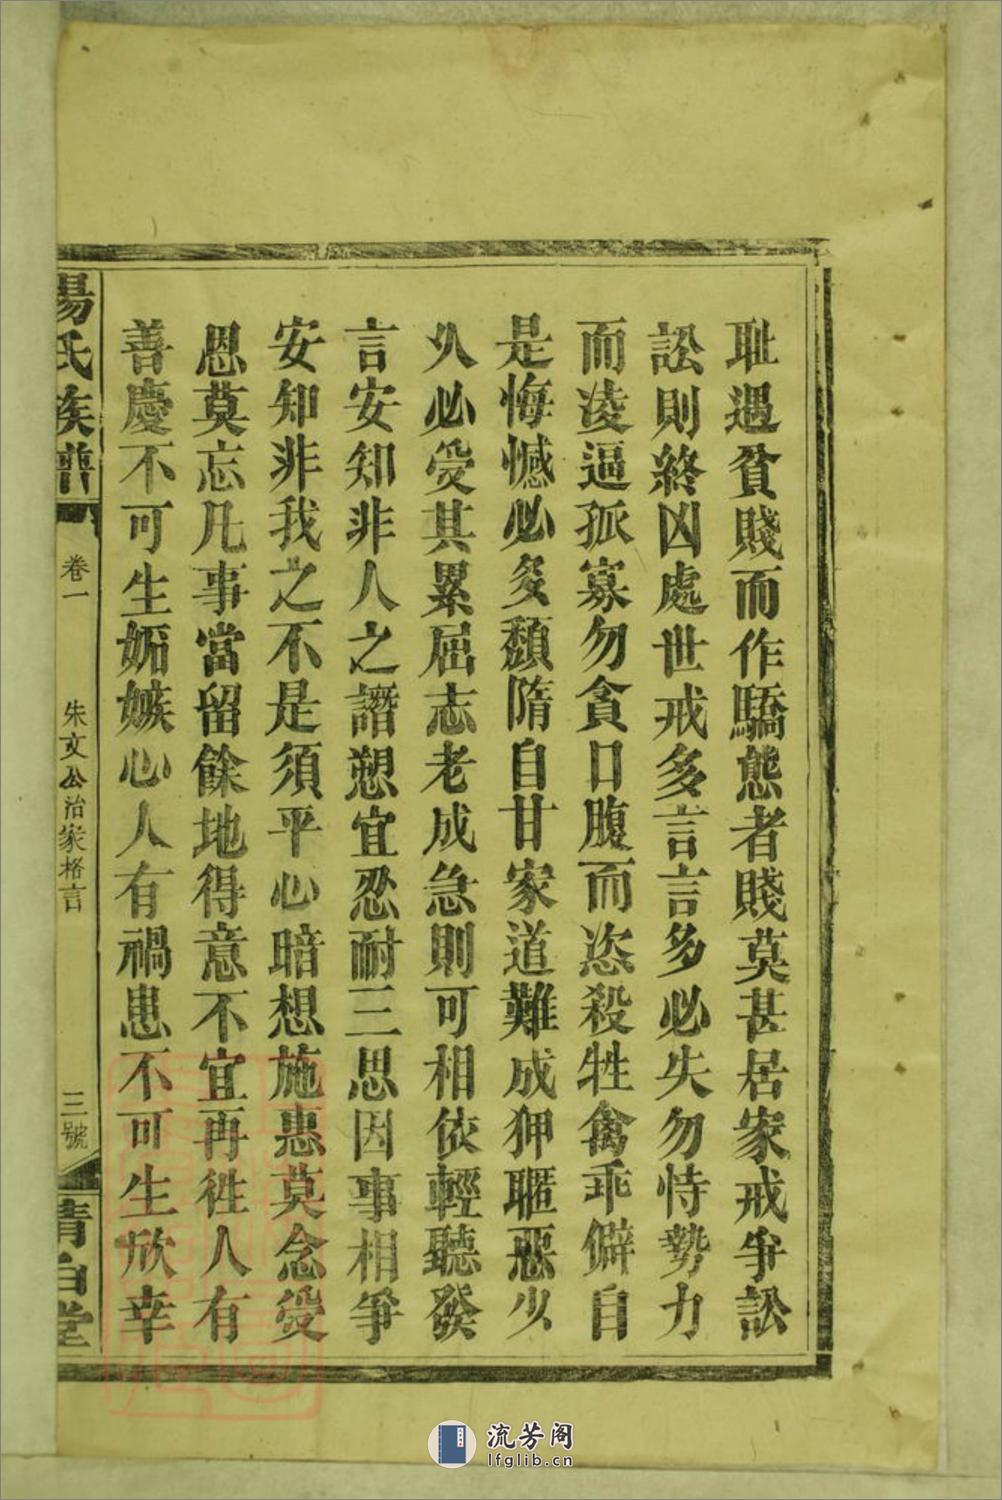 耻遇貧賤而作驕態者賤莫甚居家戒爭訟
訟則終凶處世戒多言言多必失勿恃勢力
而凌逼孤寡勿貪口腹而恣殺牲禽乖僻自
是悔憾必多頹隋自甘家道難成狎暱惡少
久必受其累屈志老成急則可相依輕聽發
言安知非人之譖愬宜忍耐三思因事相爭
安知非我之不是須平心暗想施惠莫念受
恩莫忘凡事當留餘地得意不宜再徃人有
善慶不可生妬嫉心人有禍患不可生欣幸
楊氏族譜
卷一
朱文公治家格言
三號
清白堂
流芳阁
lfglib.cn